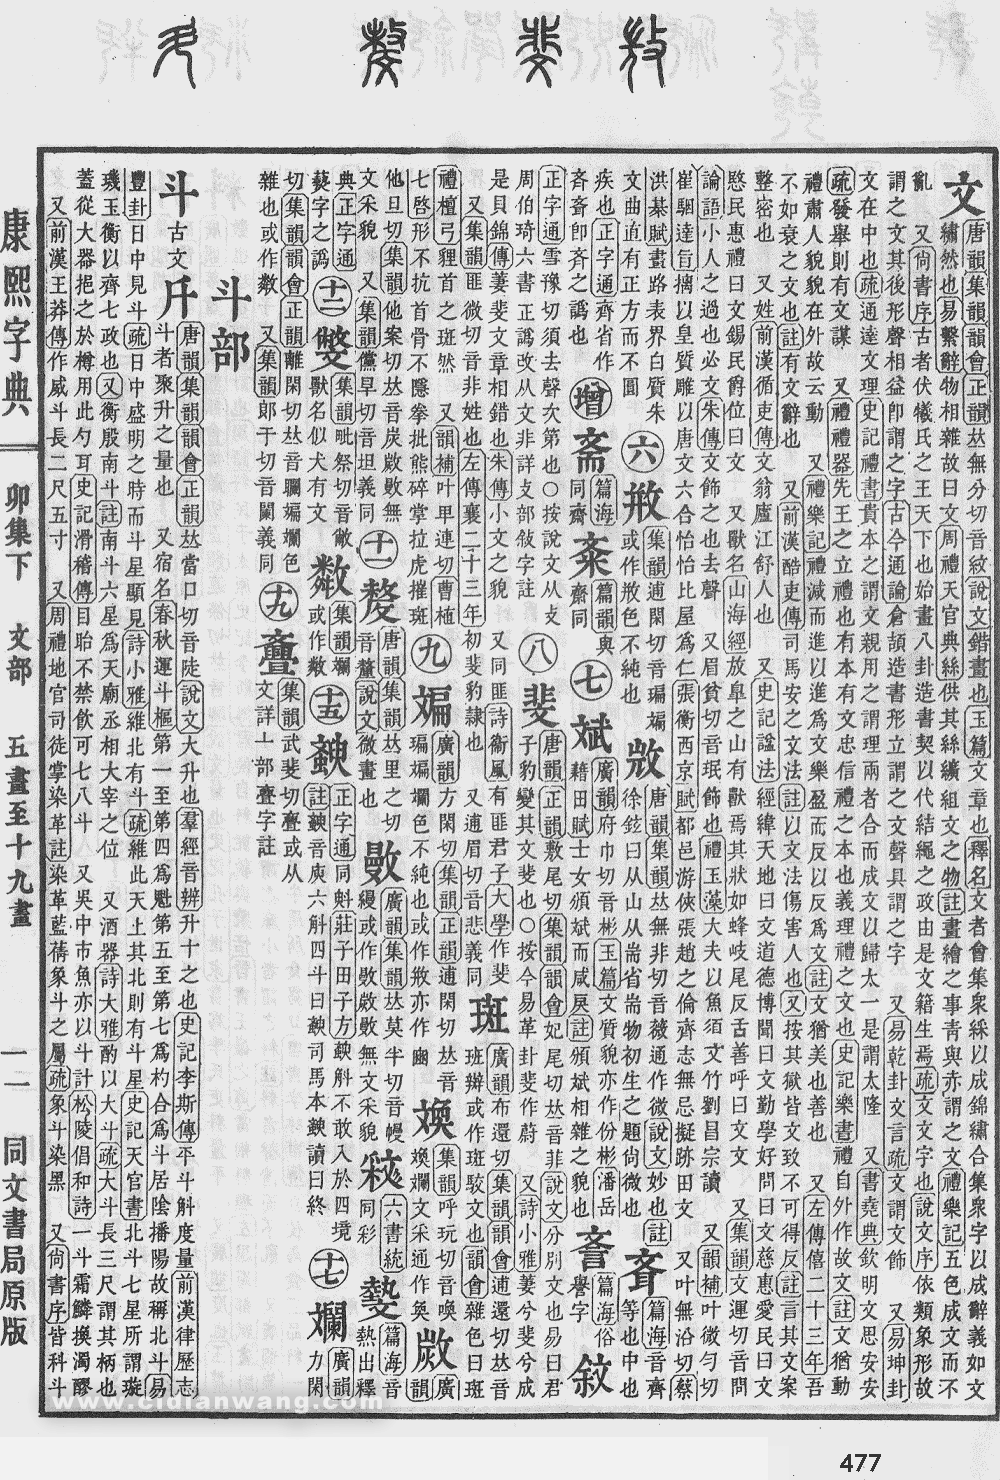 文 唐韻集韻韻會正韻𠀤無分切音紋說文錯畫也玉篇文章也釋名文者會集衆綵以成錦繡合集衆字以成辭義如文
繡然也易繫辭物相雜故曰文周禮天官典絲供其絲纊組文之物註畫繪之事靑與赤謂之文禮樂記五色成文而不
亂 又尙書序古者伏犧氏之王天下也始畫八卦造書契以代結繩之政由是文籍生焉疏文文字也說文序依類象形故
謂之文其後形聲相益卽謂之字古今通論倉頡造書形立謂之文聲具謂之字 又易乾卦文言疏文謂文飾 又易坤卦
文在中也疏通達文理史記禮書貴本之謂文親用之謂理兩者合而成文以歸太一是謂太隆 又書堯典欽明文思安安
疏發舉則有文謀 又禮禮器先王之立禮也有本有文忠信禮之本也義理禮之文也史記樂書禮自外作故文註文猶動
禮肅人貌貌在外故云動 又禮樂記禮減而進以進爲文樂盈而反以反爲文註文猶美也善也 又左傳僖二十三年吾
不如衰之文也註有文辭也 又前漢酷吏傳司馬安之文法註以文法傷害人也又按其獄皆文致不可得反註言其文案
整密也 又姓前漢循吏傳文翁廬江舒人也 又史記諡法經緯天地曰文道德博聞曰文勤學好問曰文慈惠愛民曰文
愍民惠禮曰文錫民爵位曰文 又獸名山海經放臯之山有獸焉其狀如蜂岐尾反舌善呼曰文文 又集韻文運切音問
論語小人之過也必文朱傳文飾之也去聲 又眉貧切音珉飾也禮玉藻大夫以魚須文竹劉昌宗讀 又韻補叶微勻切
崔駰達旨摛以皇質雕以唐文六合怡怡比屋爲仁張衡西京賦都邑游俠張趙之倫齊志無忌擬跡田文 又叶無沿切蔡
洪棊賦畫路表界白質朱
文曲直有正方而不圓 六 集韻逋閑切音 色不純也 唐韻集韻𠀤無非切音薇通作微說文妙也註
徐鉉曰从山从耑省耑物初生之題尙微也 篇海音齊等也中也
疾也正字通齊省作
斉斉卽齐之譌也 增 斋 篇海同齋 篇韻典齋同 七 斌 廣韻府巾切音彬玉篇文質貌亦作份彬潘岳
藉田賦士女頒斌而咸戾註頒斌相雜之貌也 篇海俗譽字
正字通雪豫切須去聲次第也○按說文从攴
周伯琦六書正譌改从文非詳攴部敍字註 八 斐 唐韻正韻敷尾切集韻韻會妃尾切𠀤音菲說文分別文也易曰君
子豹變其文斐也○按今易革卦斐作蔚 又詩小雅萋兮斐兮成
是貝錦傳萋斐文章相錯也朱傳小文之貌 又同匪詩衞風有匪君子大學作斐
又集韻匪微切音非姓也左傳襄二十三年初斐豹隸也 又通眉切音悲義同 斑 廣韻布還切集韻韻會逋還切𠀤音
班辬或作斑駁文也韻會雜色曰斑
禮檀弓狸首之斑然 又韻補叶卑連切曹植
七啓形不抗首骨不隱拳批熊碎掌拉虎摧斑 九 斒 廣韻方閑切集韻正韻逋閑切𠀤音 集韻呼玩切音喚
斒斕色不純也或作 亦作 斕文采通作奐
他旦切集韻他案切𠀤音炭 無
文采貌 又集韻儻旱切音坦義同 十一 斄 唐韻集韻𠀤里之切音釐說文微畫也 廣韻集韻𠀤莫半切音幔 無文采貌 六書統同彩 篇海音熱出釋
典正字通
藝字之譌 十二 集韻毗祭切音敝獸名似犬有文 集韻 或作 十五 正字通同斛莊子田子方 斛不敢入於四境
註 音庾六斛四斗曰 司馬本 讀曰終 十七 斕 廣韻力閑
切集韻韻會正韻離閑切𠀤音 斒色
雜也 又集韻郎于切音闌義同 十九 斖 集韻武斐切亹或从文詳亠部亹字註
斗部
斗 古文 唐韻集韻韻會正韻𠀤當口切音陡說文大升也羣經音辨升十之也史記李斯傳平斗斛度量前漢律歷志
斗者聚升之量也 又宿名春秋運斗樞第一至第四爲魁第五至第七爲杓合爲斗居隂播陽故稱北斗易
豐卦日中見斗疏日中盛明之時而斗星顯見詩小雅維北有斗疏維此天上其北則有斗星史記天官書北斗七星所謂璇
璣玉衡以齊七政也又衡殷南斗註南斗六星爲天廟丞相大宰之位 又酒器詩大雅酌以大斗疏大斗長三尺謂其柄也
蓋從大器挹之於樽用此勺耳史記滑稽傳目眙不禁飲可七八斗 又吳中市魚亦以斗計松陵倡和詩一斗霜鱗換濁醪
又前漢王莽傳作威斗長二尺五寸 又周禮地官司徒掌染革註染革藍蒨象斗之屬疏象斗染黑 又尙書序皆科斗
康熙字典
卯集下 文部 五畫至十九畫
一一
同文書局原版
www.cidianwang.com
477